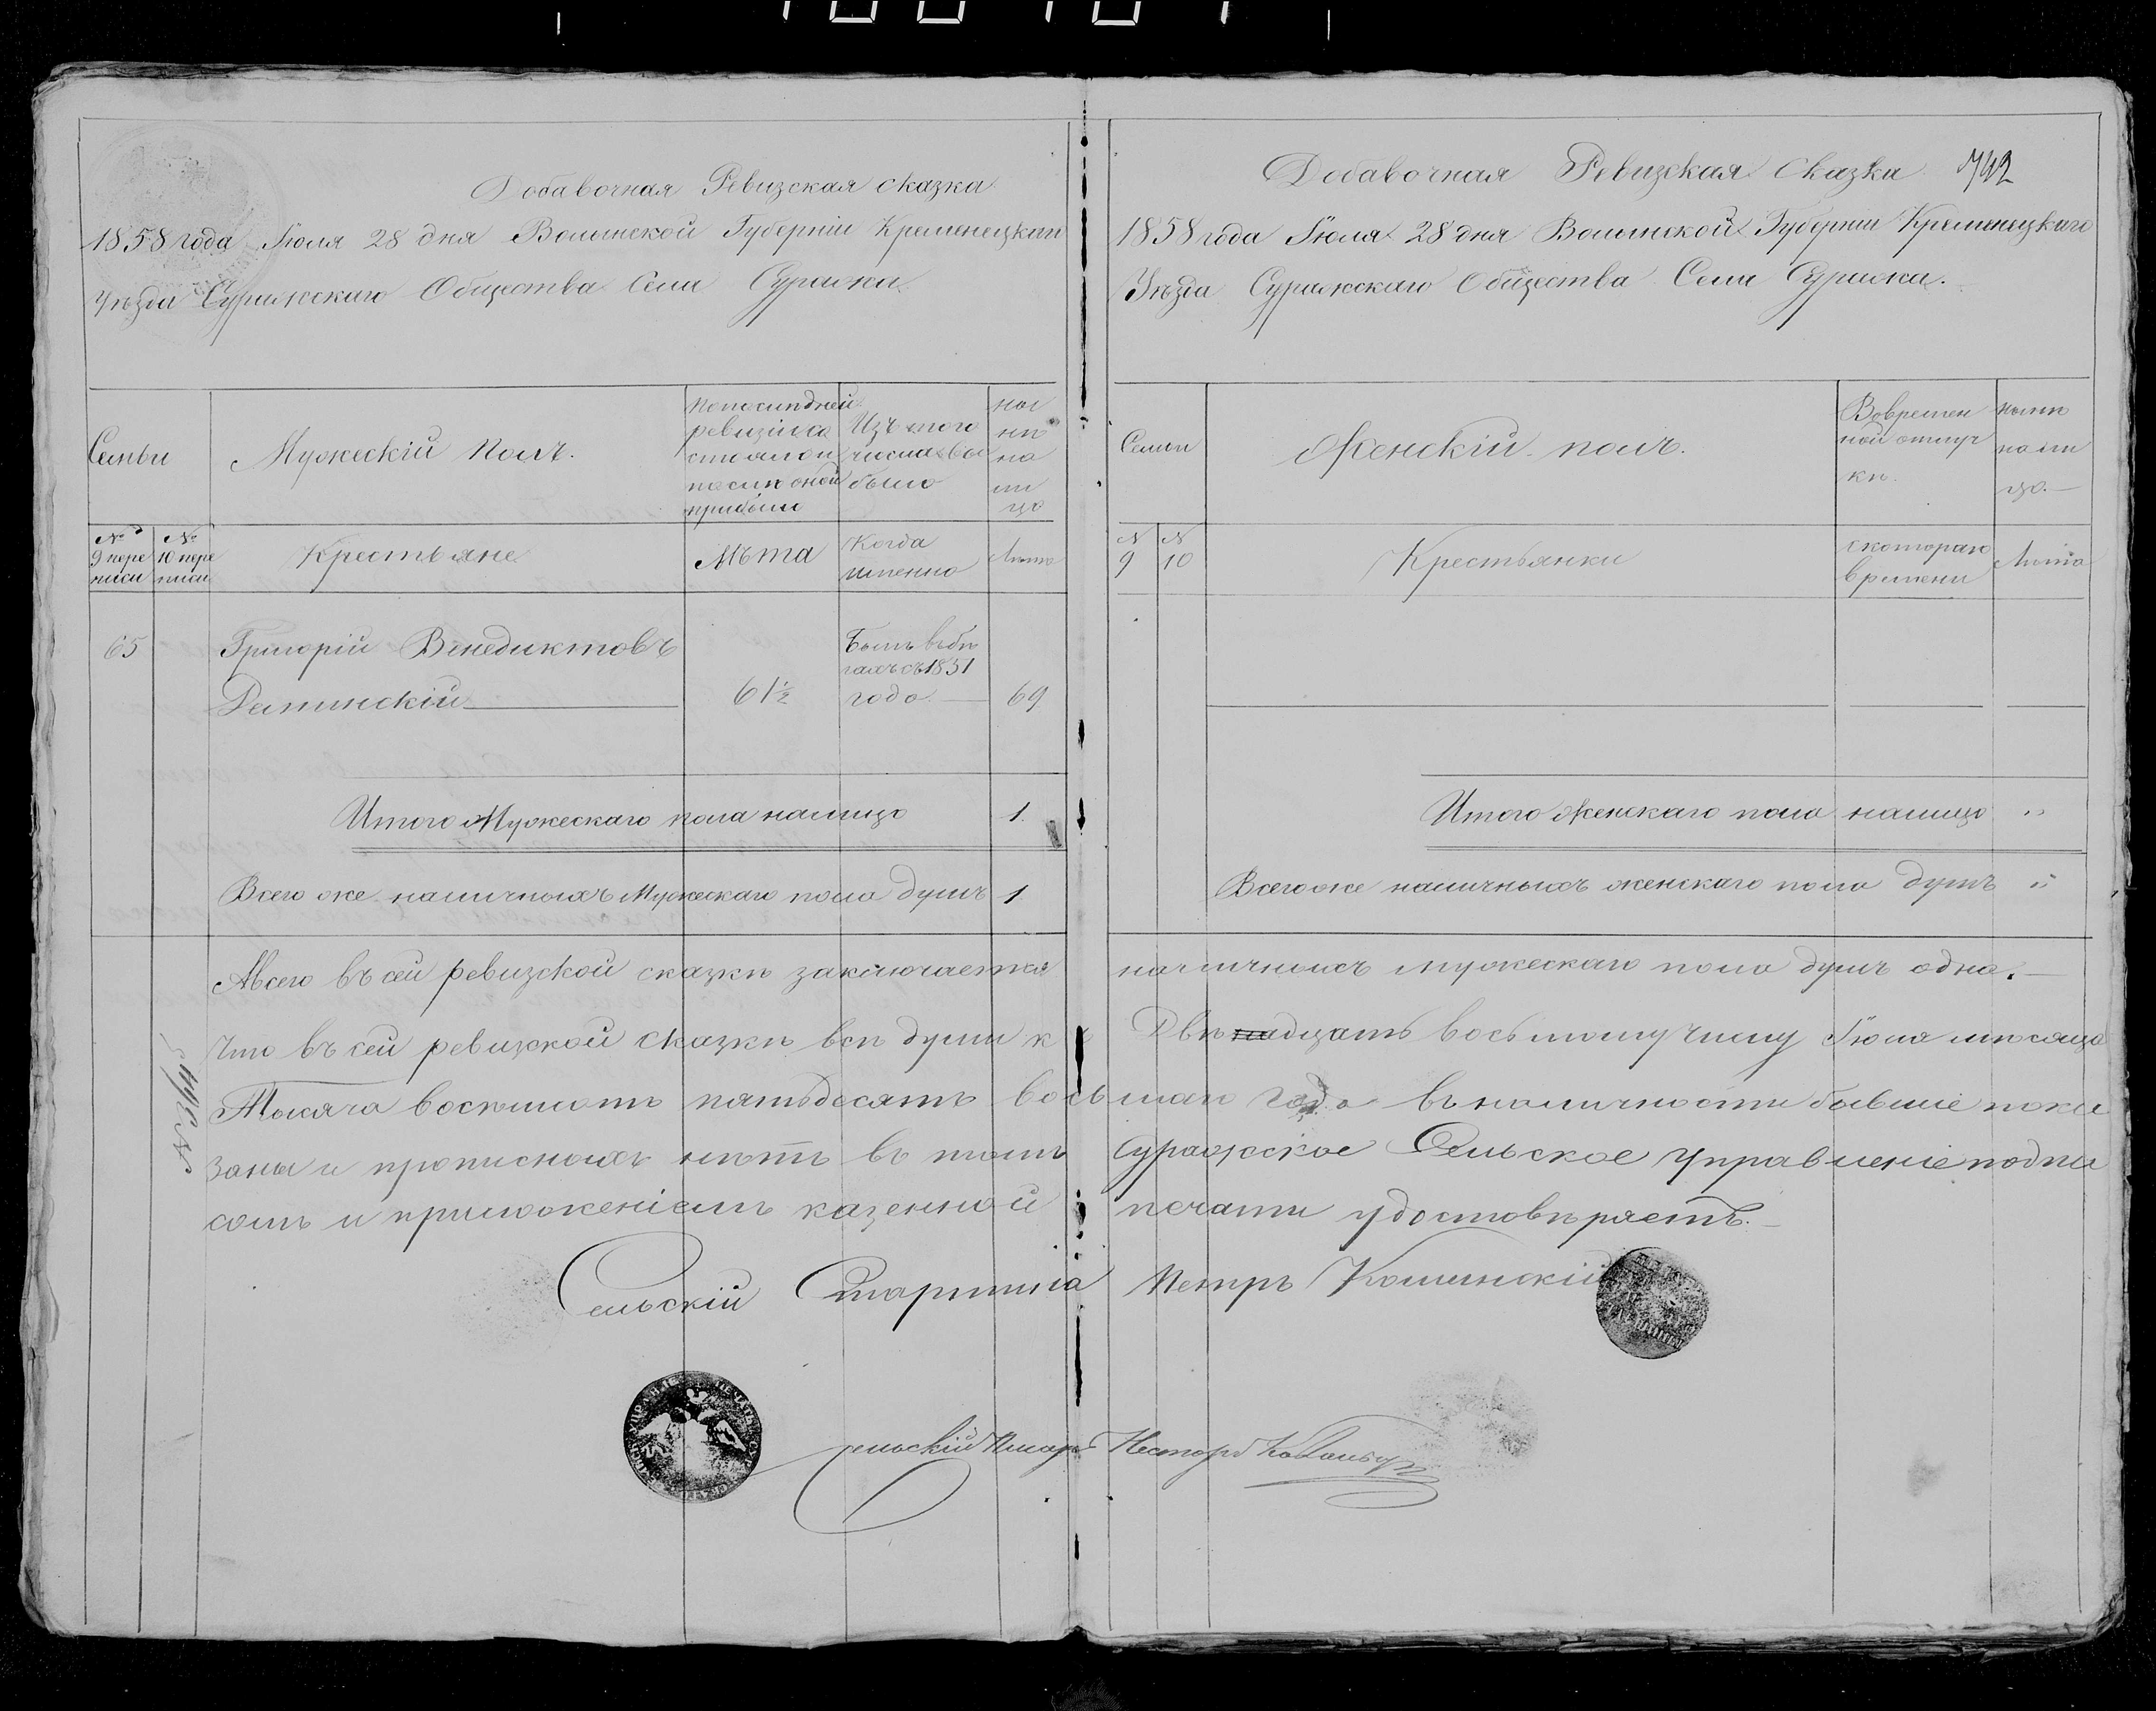 Добавочная Ревизская сказка
1858 года Іюля 28 дня Волынской Губерніи Кременецкаго
Уѣзда Суражскаго Общества Села Суража
Семьи
Мужескій Полъ.
По послѣдней
ревизіи со
стояло и
послѣ оной
прибыло
Изъ того
числа вы
было
ны
нѣ
на
ли
цо
№
9 пере
писи
№
10 пере
писи
Крестьяне
Лѣта
Когда
именно
Лѣта
65
Григорій Венедиктовъ
61½
Былъ въ бѣ
гахъ съ 1831
года
69
Итого Мужескаго пола налицо 1.
Всего же наличныхъ Мужескаго пола душъ 1
Добавочная Ревизская Сказка 742
1858 года Іюля 28 дня Волынской Губерніи Кременецкаго
Уѣзда Суражскаго Общества Села Суража.
Семьи
Женскій полъ.
Вовремен
ной отлуч
кѣ.
нынѣ
нали
цо.
N
9
N
10
Крестьянки
с котораго
времени
Лѣта
Итого женскаго пола налицо "
Всего же наличныхъ женскаго пола душъ "
А всего въ сей ревизской сказкѣ заключается наличныхъ мужескаго пола душъ одна.
Что въ сей ревизской сказкѣ всѣ души к Двѣнадцать восьмому числу Іюля мѣсяца
Тысяча восемьсотъ пятьдесятъ восьмаго года въ наличности бывшіе пока
заны и прописныхъ нѣтъ въ томъ Суражское Сельское Управленіе подпи
сомъ и приложеніемъ казенной печати удостовѣряетъ.
Сельскій Старшина Петръ
Сельскій Писарь Несторъ